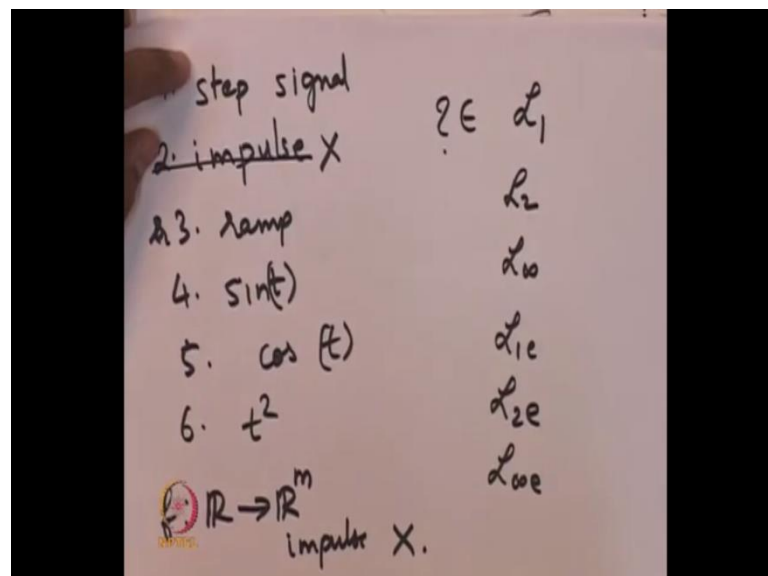 step signal
2. impulse X
3. ramp
4. sin(t)
5. cos (t)
6. t²
ℝ → ℝᵐ
impulse X.
? ∈ ℒ₁
ℒ₂
ℒ∞
ℒ₁e
ℒ₂e
ℒ∞e